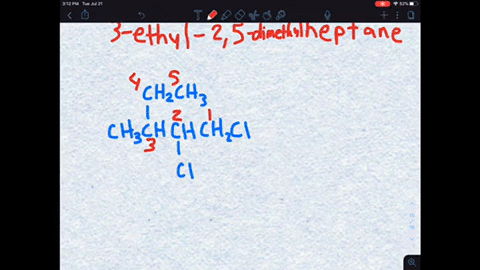 3:12 PM Tue Jul 21
52%
3-ethyl-2,5-dimethylheptane
4 5
CH₂CH₃
2 1
CH₃CHCHCH₂Cl
3
Cl